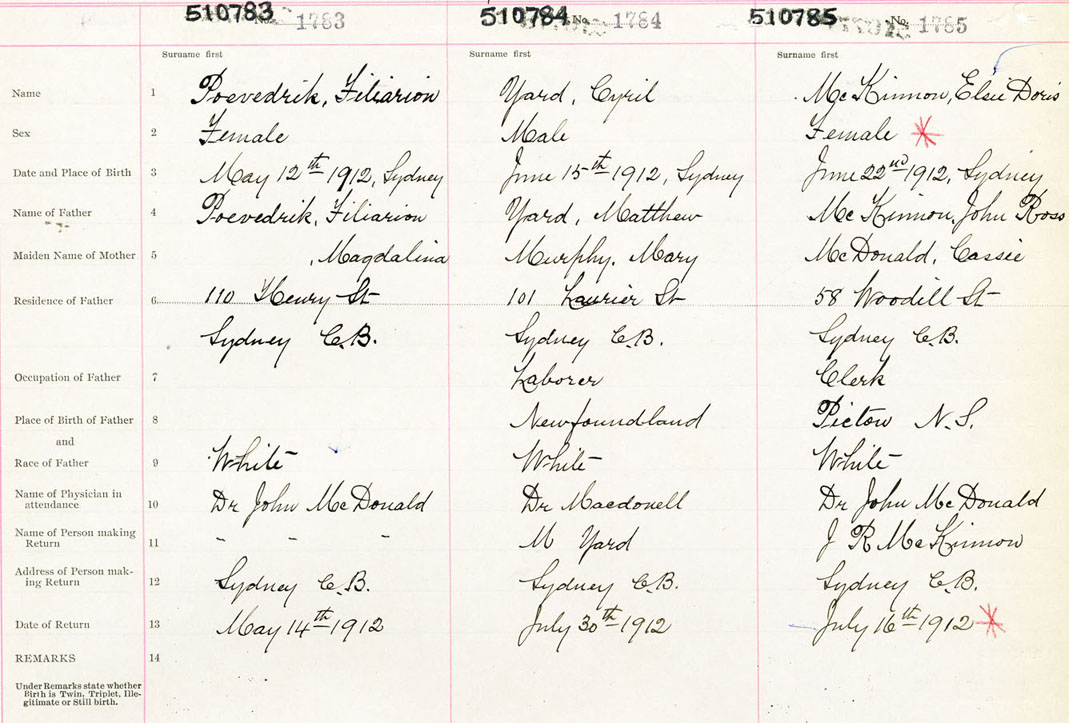 510783 No. 1783 510784 No. 1784 510785 No. 1785
Surname first Surname first Surname first
Name 1 Poevedrik, Filiarion Yard, Cyril McKinnon, Elsie Doris
Sex 2 Female Male Female
Date and Place of Birth 3 May 12th 1912, Sydney June 15th 1912, Sydney June 22nd 1912, Sydney
Name of Father 4 Poevedrik, Filiarion Yard, Matthew McKinnon, John Ross
Maiden Name of Mother 5 , Magdalina Murphy, Mary McDonald, Cassie
Residence of Father 6 110 Henry St 101 Laurier St 58 Woodill St
Sydney C.B. Sydney C.B. Sydney C.B.
Occupation of Father 7 Laborer Clerk
Place of Birth of Father 8 Newfoundland Pictou N.S.
and
Race of Father 9 White White White
Name of Physician in
attendance 10 Dr John McDonald Dr Macdonell Dr John McDonald
Name of Person making
Return 11 " " " M Yard J R McKinnon
Address of Person mak-
ing Return 12 Sydney C.B. Sydney C.B. Sydney C.B.
Date of Return 13 May 14th 1912 July 30th 1912 July 16th 1912
REMARKS 14
Under Remarks state whether
Birth is Twin, Triplet, Ille-
gitimate or Still birth.